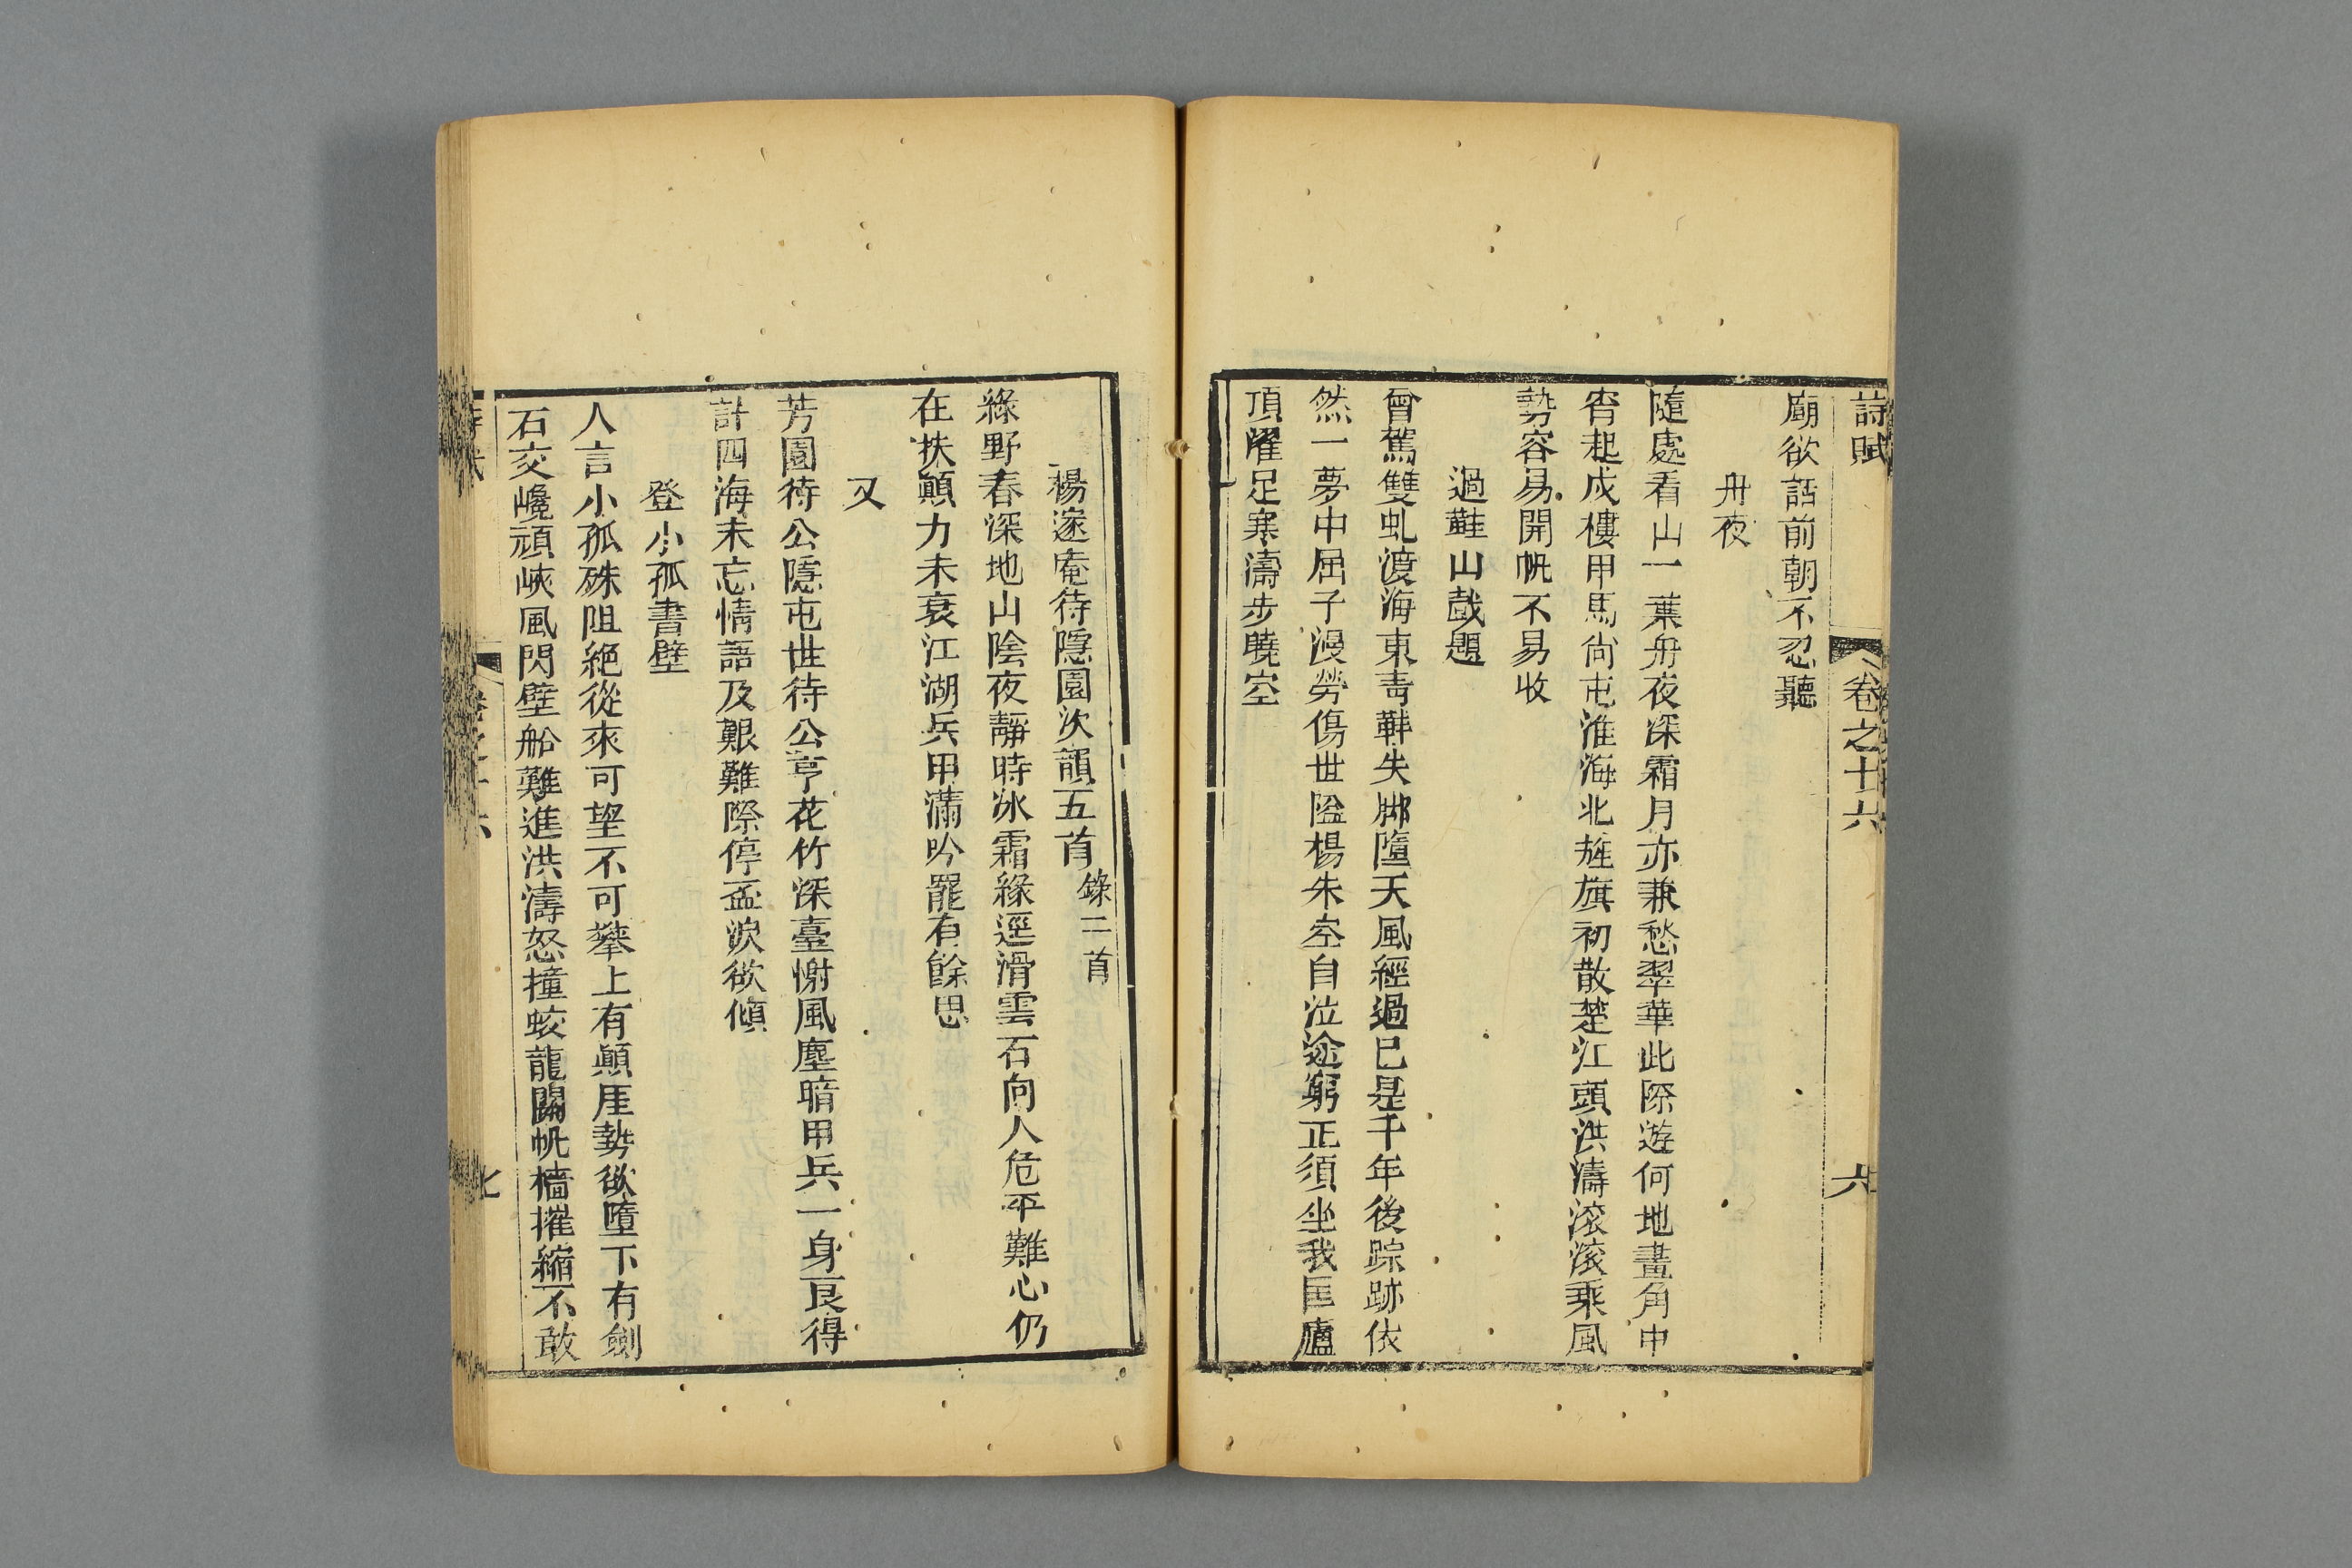 詩賦
卷之十六
六
廟欲話前朝不忍聽
舟夜
隨處看山一葉舟夜深霜月亦兼愁翠華此際遊何地畫角中
宵起戍樓甲馬尚屯淮海北旌旗初散楚江頭洪濤滚滚乘風
勢容易開帆不易收
過鞋山戯題
曾駕雙虬渡海東青鞵失脚墮天風經過已是千年後踪跡依
然一夢中屈子漫勞傷世隘楊朱空自泣途窮正須坐我匡廬
頂濯足寒濤步曉空
楊邃庵待隱園次韻五首錄二首
綠野春深地山陰夜靜時冰霜緣逕滑雲石向人危平難心仍
在扶顛力未衰江湖兵甲滿吟罷有餘思
又
芳園待公隱屯世待公亨花竹深臺榭風塵暗甲兵一身良得
計四海未忘情語及艱難際停盃淚欲傾
登小孤書壁
人言小孤殊阻絕從來可望不可攀上有顛厓勢欲墮下有劍
石交巉頑峽風閃壁船難進洪濤怒撞蛟龍關帆檣摧縮不敢